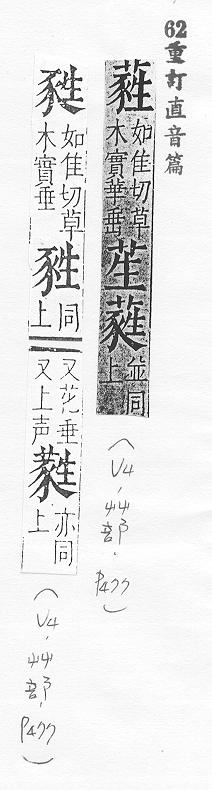 62重訂直音篇
蕤 如隹切草木實華垂 苼 蕤 並同上
(V4，艸部，P477)
甤 如隹切草木實垂 同上 又花垂又上声 亦同上
(V4，艸部，P477)